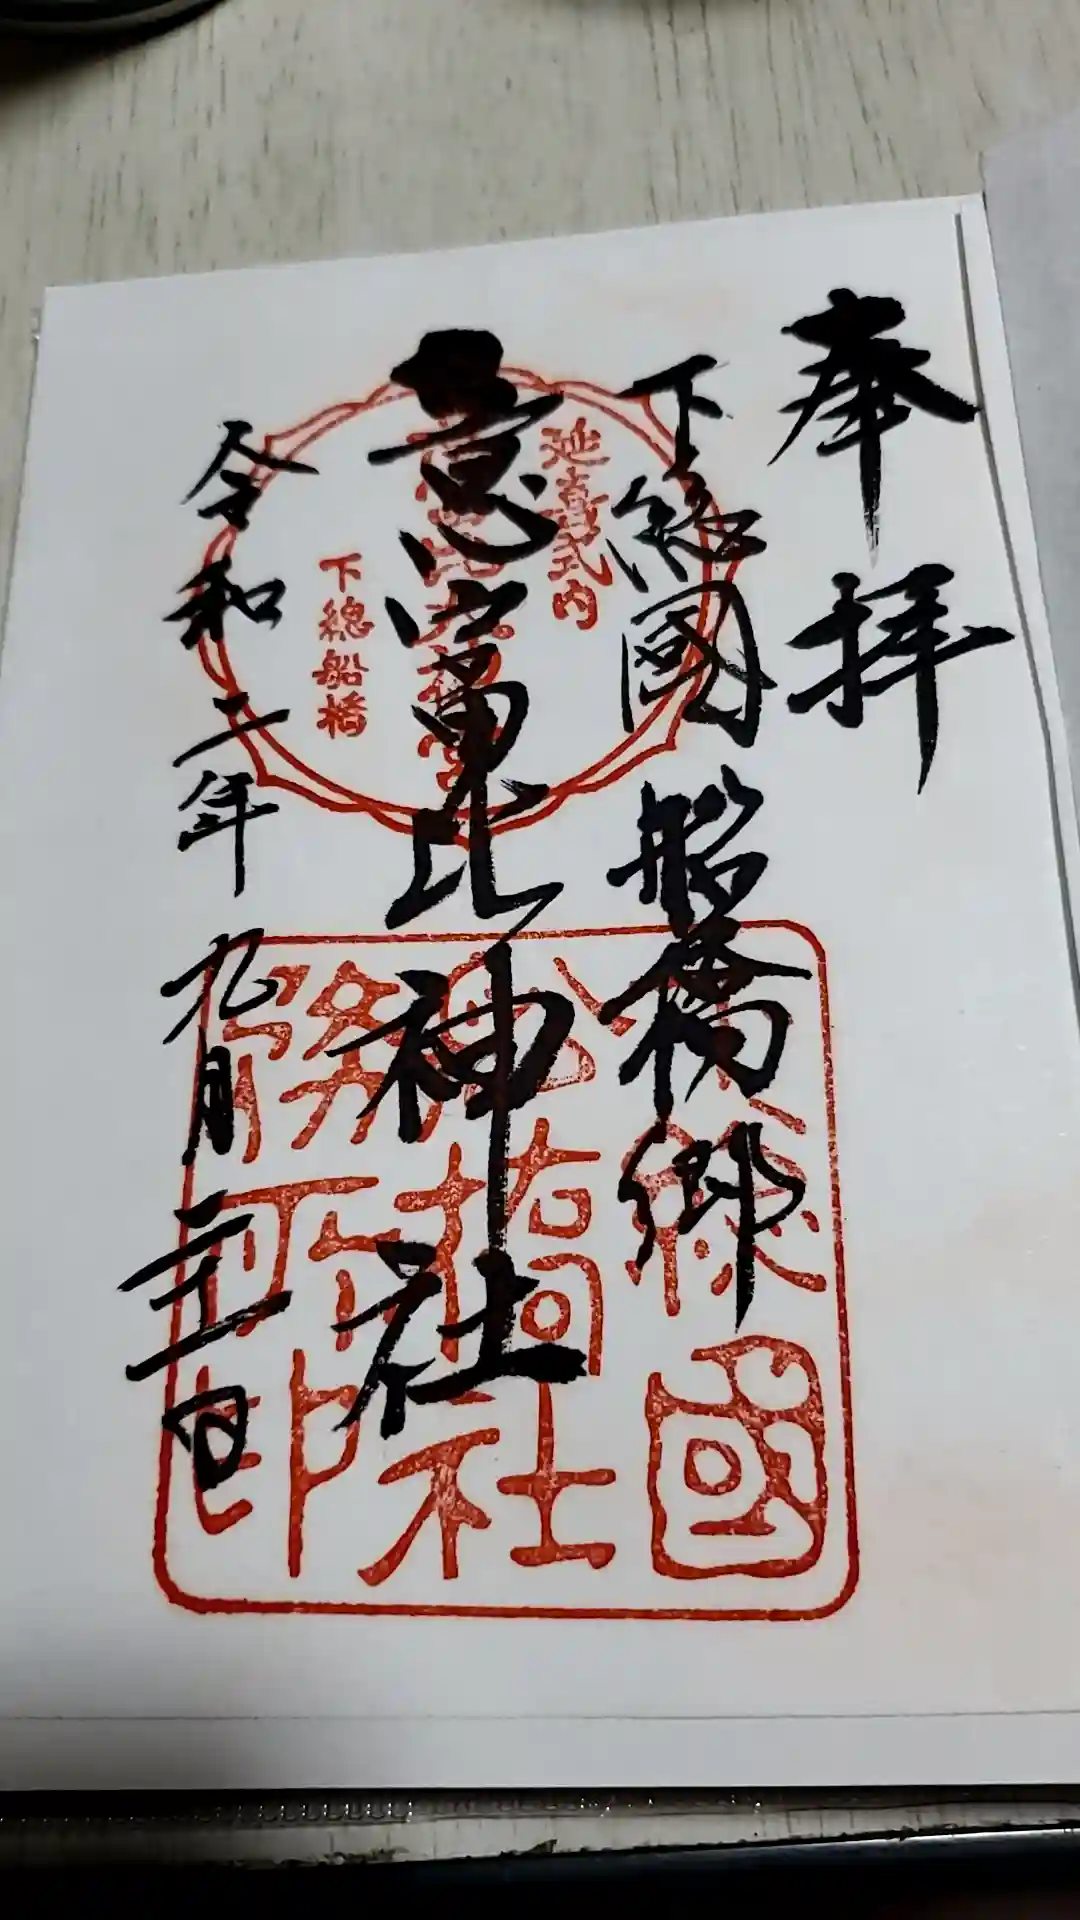 奉拝
下総國船橋郷
意富比神社
令和二年九月
日
延喜式内
意富比大神宮
下總船橋
下總國
船橋社
務所印